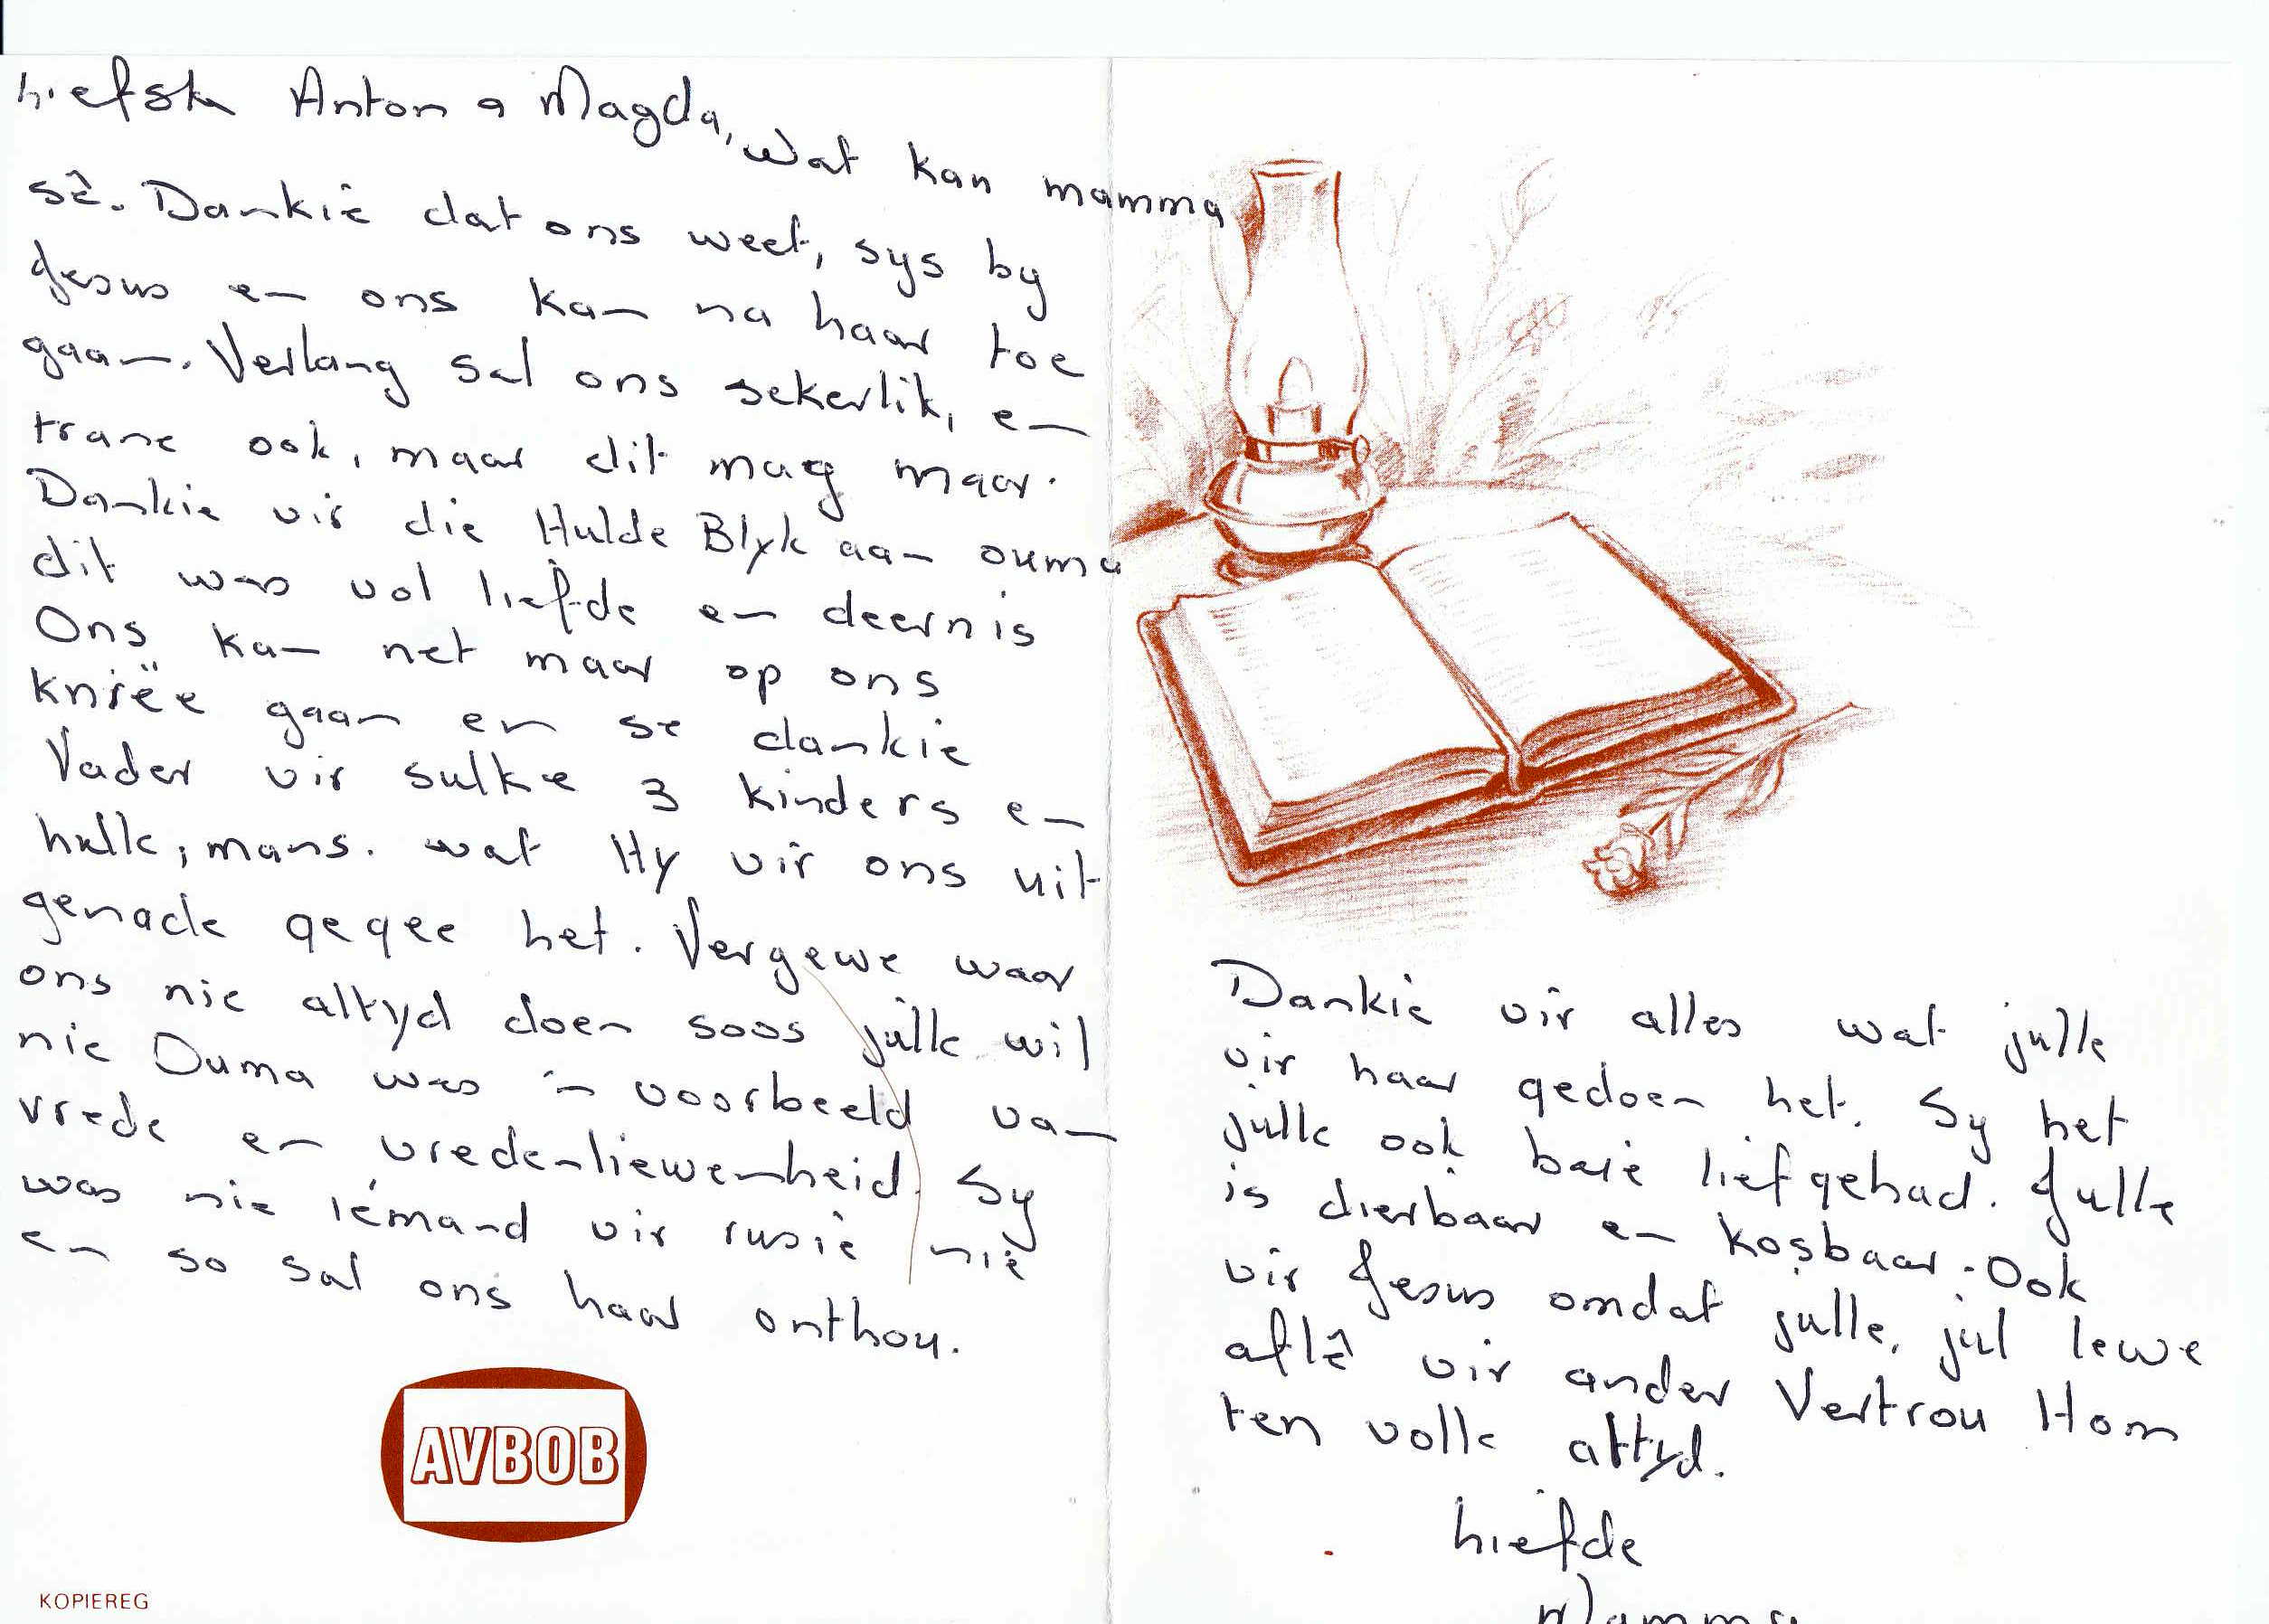 Liefste Anton & Magda, Wat kan mamma
sê. Dankie dat ons weet, sys by
Jesus en ons kan na haar toe
gaan. Verlang sal ons sekerlik, en
trane ook, maar dit mag maar.
Dankie vir die Hulde Blyk aan ouma
dit was vol liefde en deernis
Ons kan net maar op ons
knieë gaan en se dankie
Vader vir sulke 3 kinders en
hulle, mans. wat Hy vir ons uit
genade gegee het. Vergewe waar
ons nie altyd doen soos julle wil
nie Ouma was 'n voorbeeld van
vrede en vredenliewenheid. Sy
was nie iémand vir rusie nie
en so sal ons haar onthou.
AVBOB
KOPIEREG
Dankie vir alles wat julle
vir haar gedoen het. Sy het
julle ook baie liefgehad. Julle
is dierbaar en kosbaar. Ook
vir Jesus omdat julle, jul lewe
aflê vir ander Vertrou Hom
ten volle altyd.
Liefde
Mamma